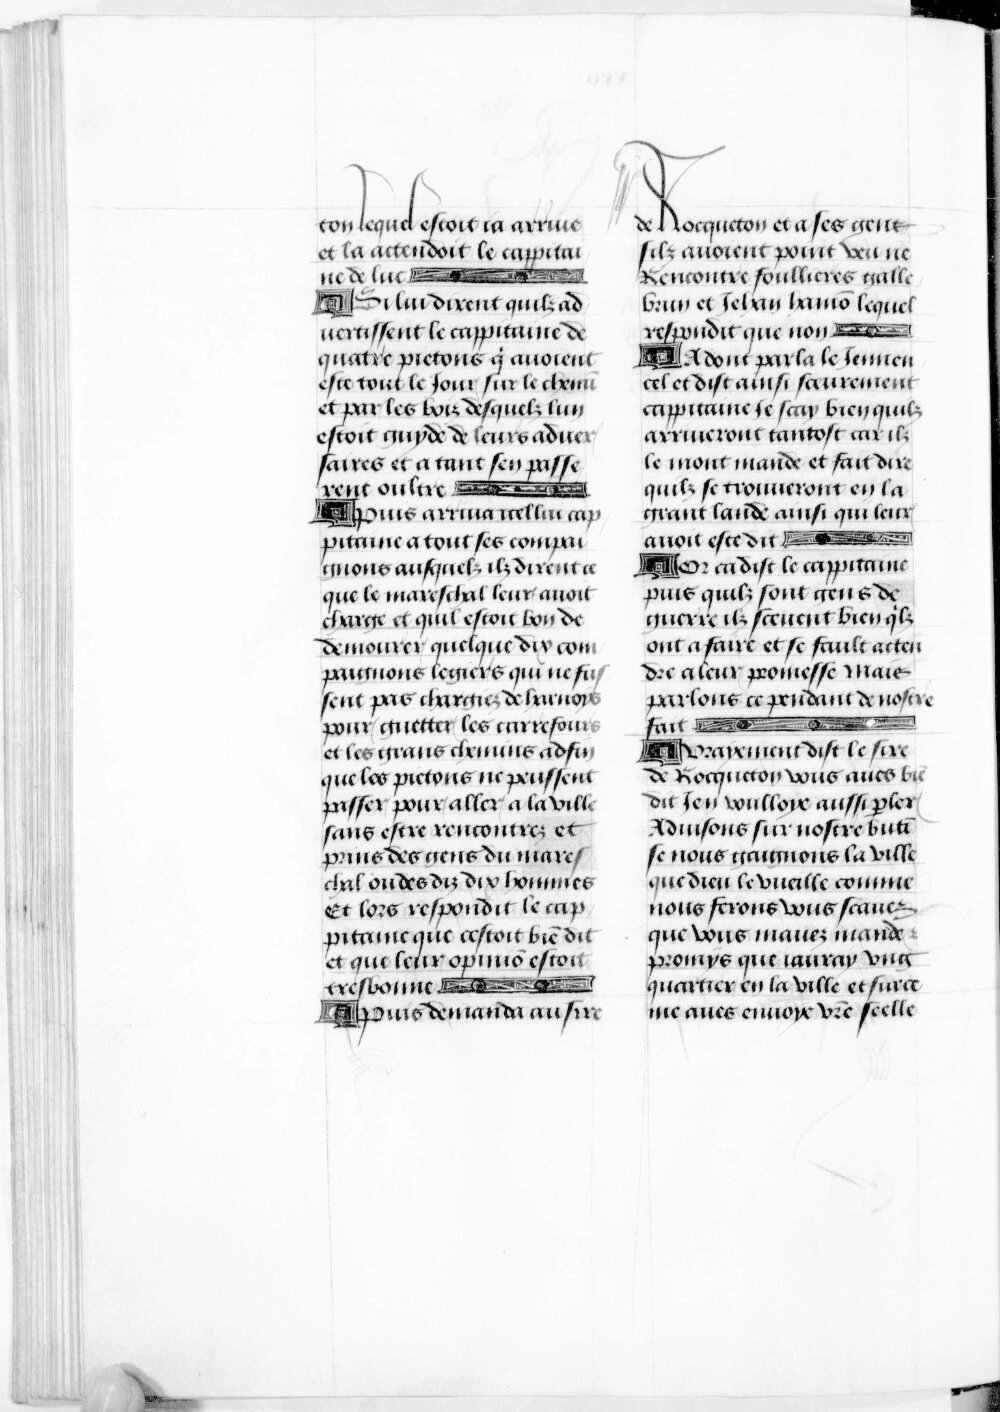 ton lequel estoit ia arriue
et la actendoit le cappitai
ne de luc
Si lui dirent quilz ad
uertissent le cappitaine de
quatre pietons q̄ auoient
este tout le Jour sur le chemī
et par les boiz desquelz lun
estoit guyde de leurs aduer
saires et a tant sen passe
rent oultre
Puis arriua icellui cap
pitaine a tout ses compai
gnons ausquelz ilz dirent ce
que le mareschal leur auoit
charge et quil estoit bon de
demourer quelque dix com
paignons legiers qui ne fus
sent pas chargiez de harnoys
pour guetter les carrefours
et les grans chemins adfin
que les pietons ne peussent
passer pour aller a la ville
sans estre rencontrez et
prins des gens du mares
chal ou des diz dix hommes
Et lors respondit le cap
pitaine que cestoit biē dit
et que leur opiniō estoit
tresbonne
Puis demanda au sire
de Rocqueton et a ses gens
silz auoient point veu ne
Rencontre soullieres galle
brun et Jehan hamō lequel
respondit que non
Adont parla le Jenneu
cel et dist ainsi seurement
cappitaine Je scay bien quilz
arriueront tantost car ilz
le mont mande et fait dire
quilz se trouueront en la
grant lande ainsi qui leur
auoit este dit
Or ca dist le cappitaine
puis quilz sont gens de
guerre ilz sceuent bien q̄lz
ont a faire et se fault acten
dre a leur promesse Mais
parlons ce pendant de nostre
fait
Vraiement dist le sire
de Rocqueton vous aues biē
dit Jen voulloye aussi p̄ler
Aduisons sur nostre butī
se nous gaignons la ville
que dieu le vueille comme
nous ferons vous scauez
que vous mauez mande
promys que iauray vng
quartier en la ville et sur ce
me aues enuoye vr̄e seelle